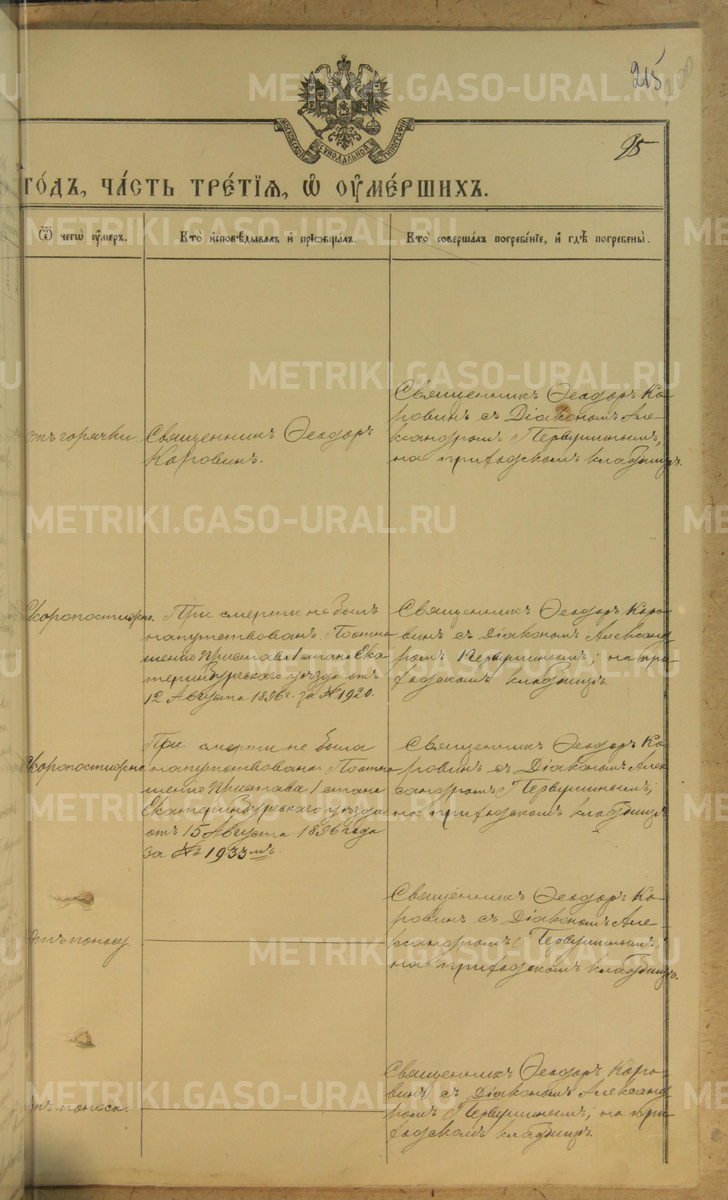 215
95
МОСКОВСКОЙ СѴНОДАЛЬНОЙ ТИПОГРАФІИ
го́дъ, ча́сть тре́тїѧ, ѡ҆ ᲂу҆ме́ршихъ.
Ѿ чегѡ̀ ᲂу҆́меръ.
Кто̀ и҆сповѣ́дывалъ и҆ прїѡбща́лъ.
Кто̀ соверша́лъ погребе́нїе, и҆ гдѣ̀ погребены̀.
отъ горячки.
Священникъ Ѳеодоръ
Коровинъ.
Священникъ Ѳеодоръ Ко-
ровинъ съ Діакономъ Але-
ксандромъ Первушинымъ,
на приходскомъ кладбищѣ.
Скоропостижно.
При смерти не былъ
напутствованъ. Поотно-
шенію Пристава 1 стана Ека-
теринбургскаго уѣзда отъ
12 Августа 1896 г. за № 1920.
Священникъ Ѳеодоръ Коро-
винъ съ Діакономъ Александ-
ромъ Первушинымъ; на при-
ходскомъ кладбищѣ.
Скоропостижно.
При смерти не была
напутствована. Поотно-
шенію Пристава 1 стана
Екатеринбургскаго уѣзда
отъ 15 Августа 1896 года
за № 1933мъ.
Священникъ Ѳеодоръ Ко-
ровинъ съ Діакономъ Алек-
сандромъ Первушинымъ;
на приходскомъ кладбищѣ.
Отъ поносу
Священникъ Ѳеодоръ Ко-
ровинъ съ Діакономъ Але-
ксандромъ Первушинымъ;
на приходскомъ кладбищѣ.
отъ поноса.
Священникъ Ѳеодоръ Коро-
винъ съ Діакономъ Александ-
ромъ Первушинымъ; на при-
ходскомъ кладбищѣ.
METRIKI.GASO-URAL.RU
METRIKI.GASO-URAL.RU
METRIKI.GASO-URAL.RU
METRIKI.GASO-URAL.RU
METRIKI.GASO-URAL.RU
METRIKI.GASO-URAL.RU
METRIKI.GASO-URAL.RU
METRIKI.GASO-URAL.RU